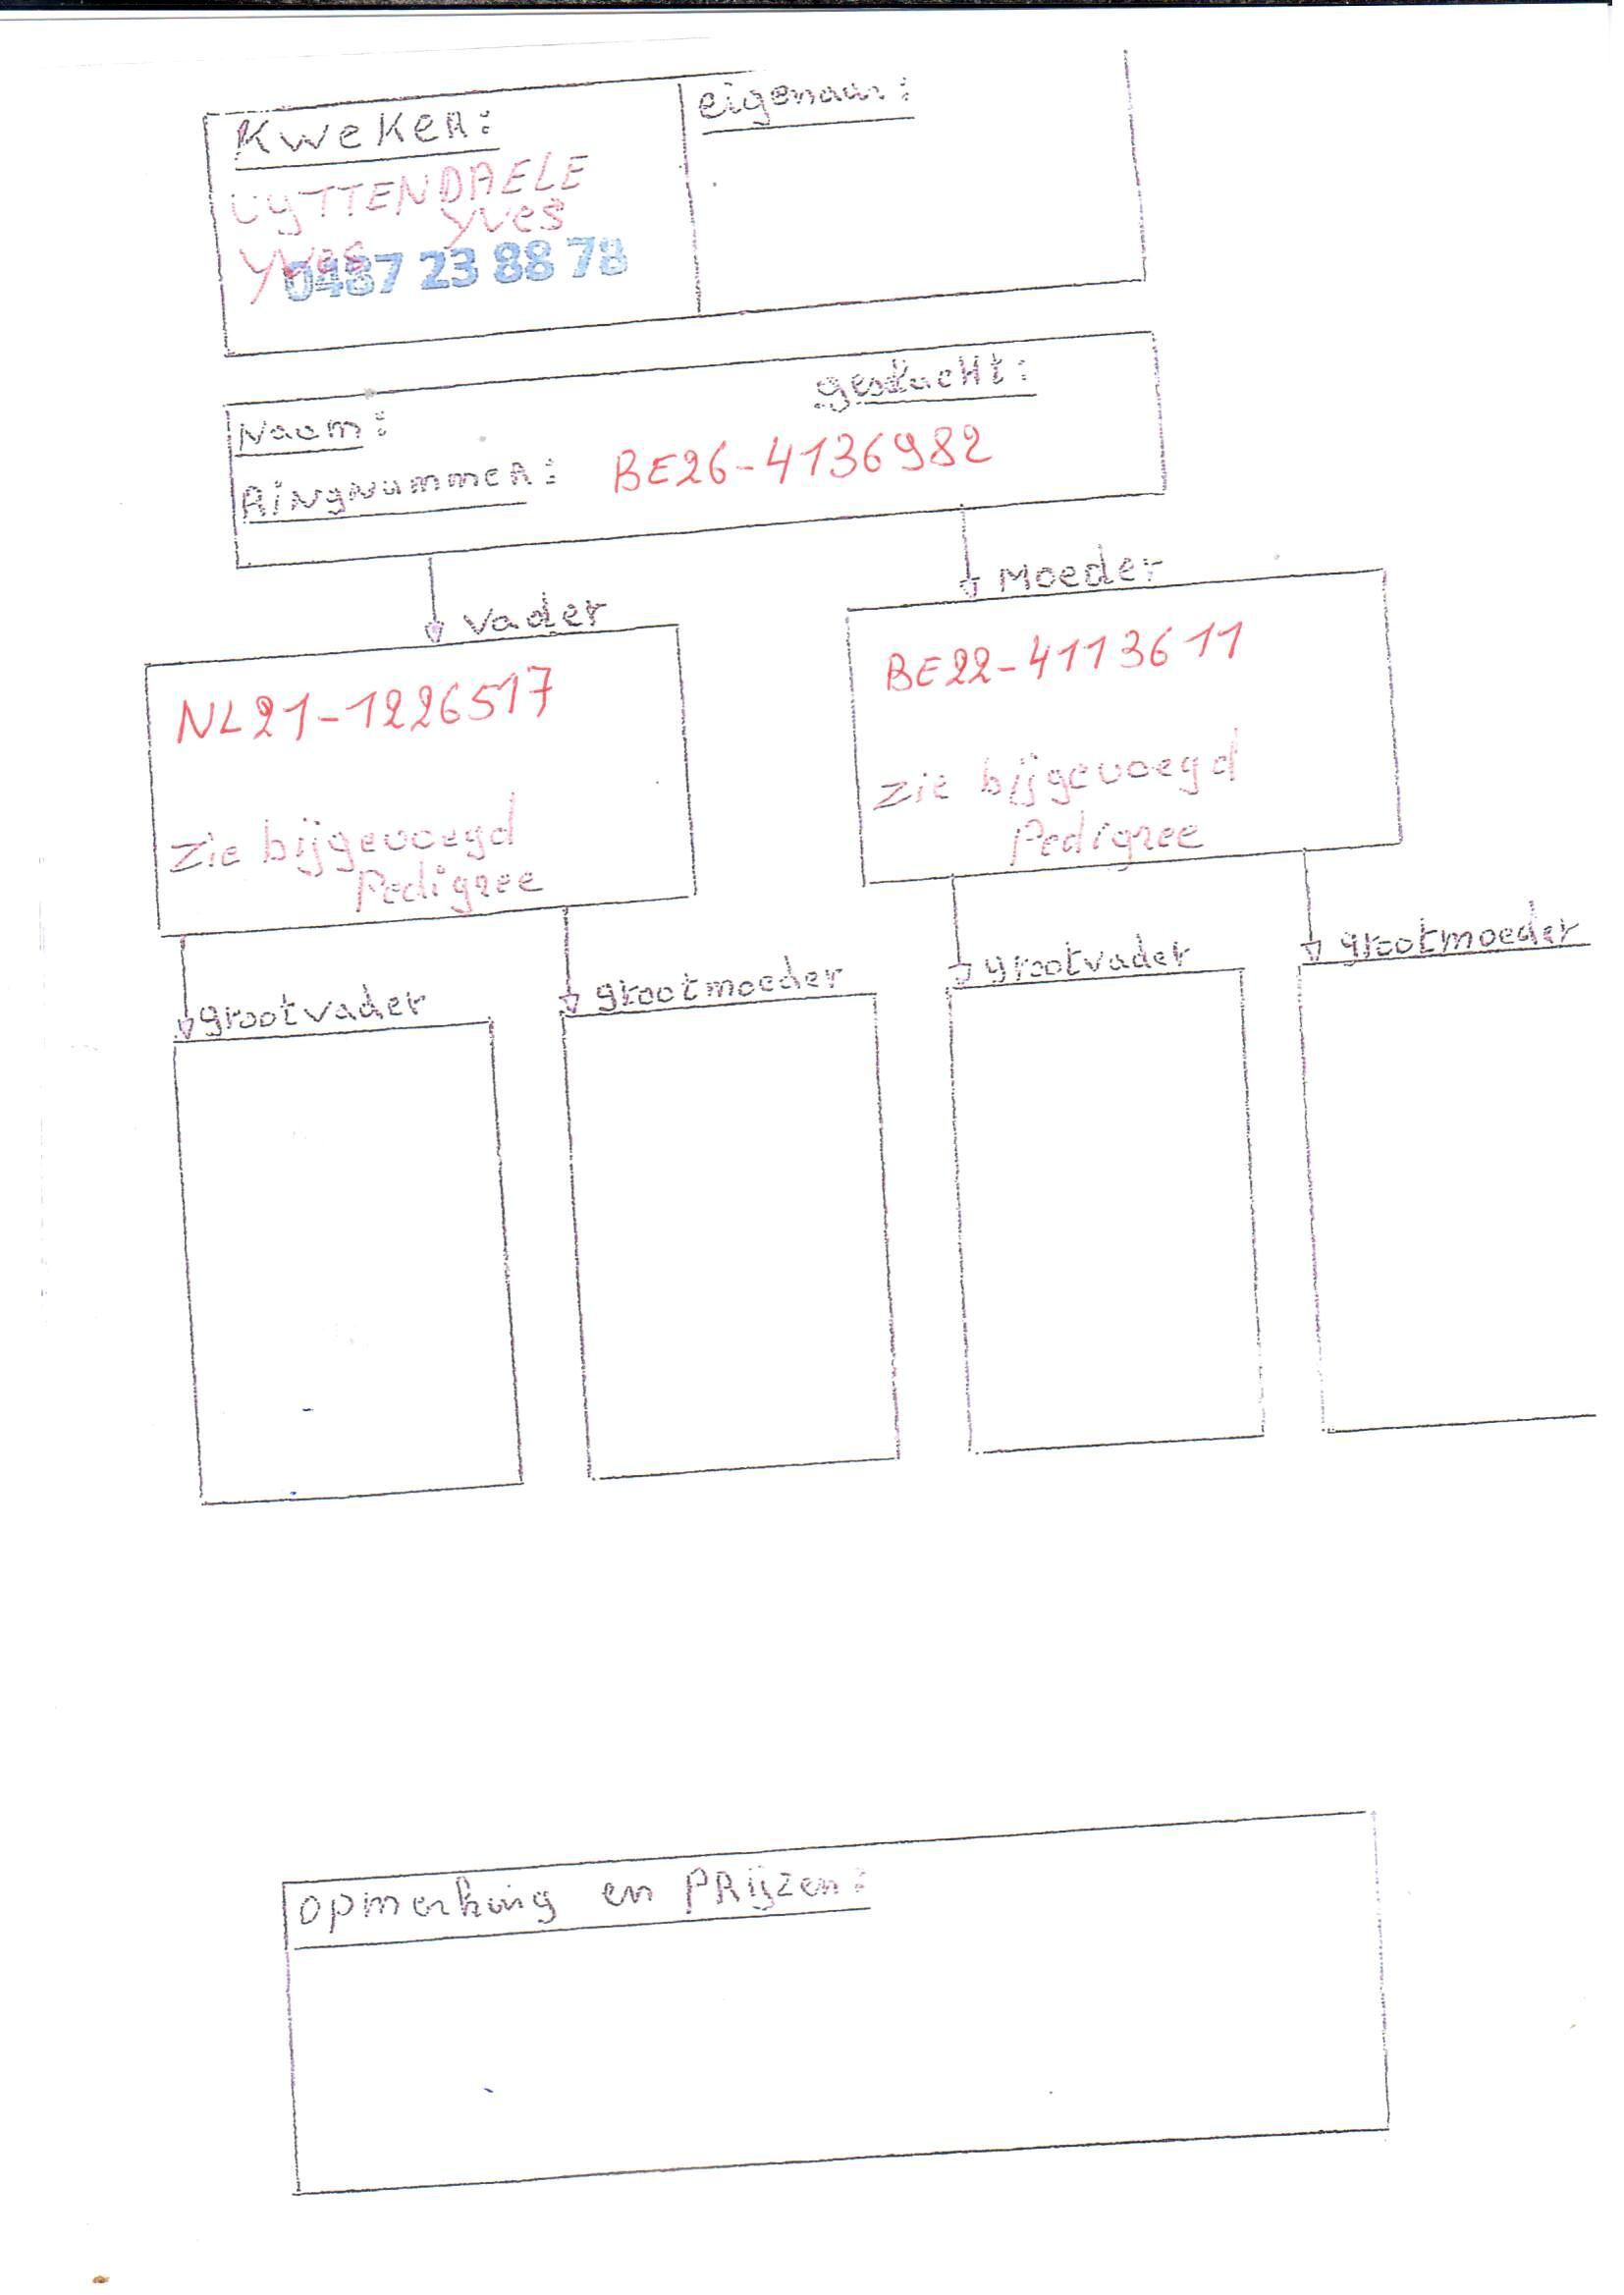 Kweker:
eigenaar:
UYTTENDAELE
Yves
Yves
0487 23 88 78
geslacht:
Naam:
Ringnummer: BE26-4136982
Vader
Moeder
NL21-1226517
BE22-4113611
Zie bijgevoegd
Pedigree
Zie bijgevoegd
Pedigree
grootvader
grootmoeder
grootvader
grootmoeder
opmerking en PRijzen: